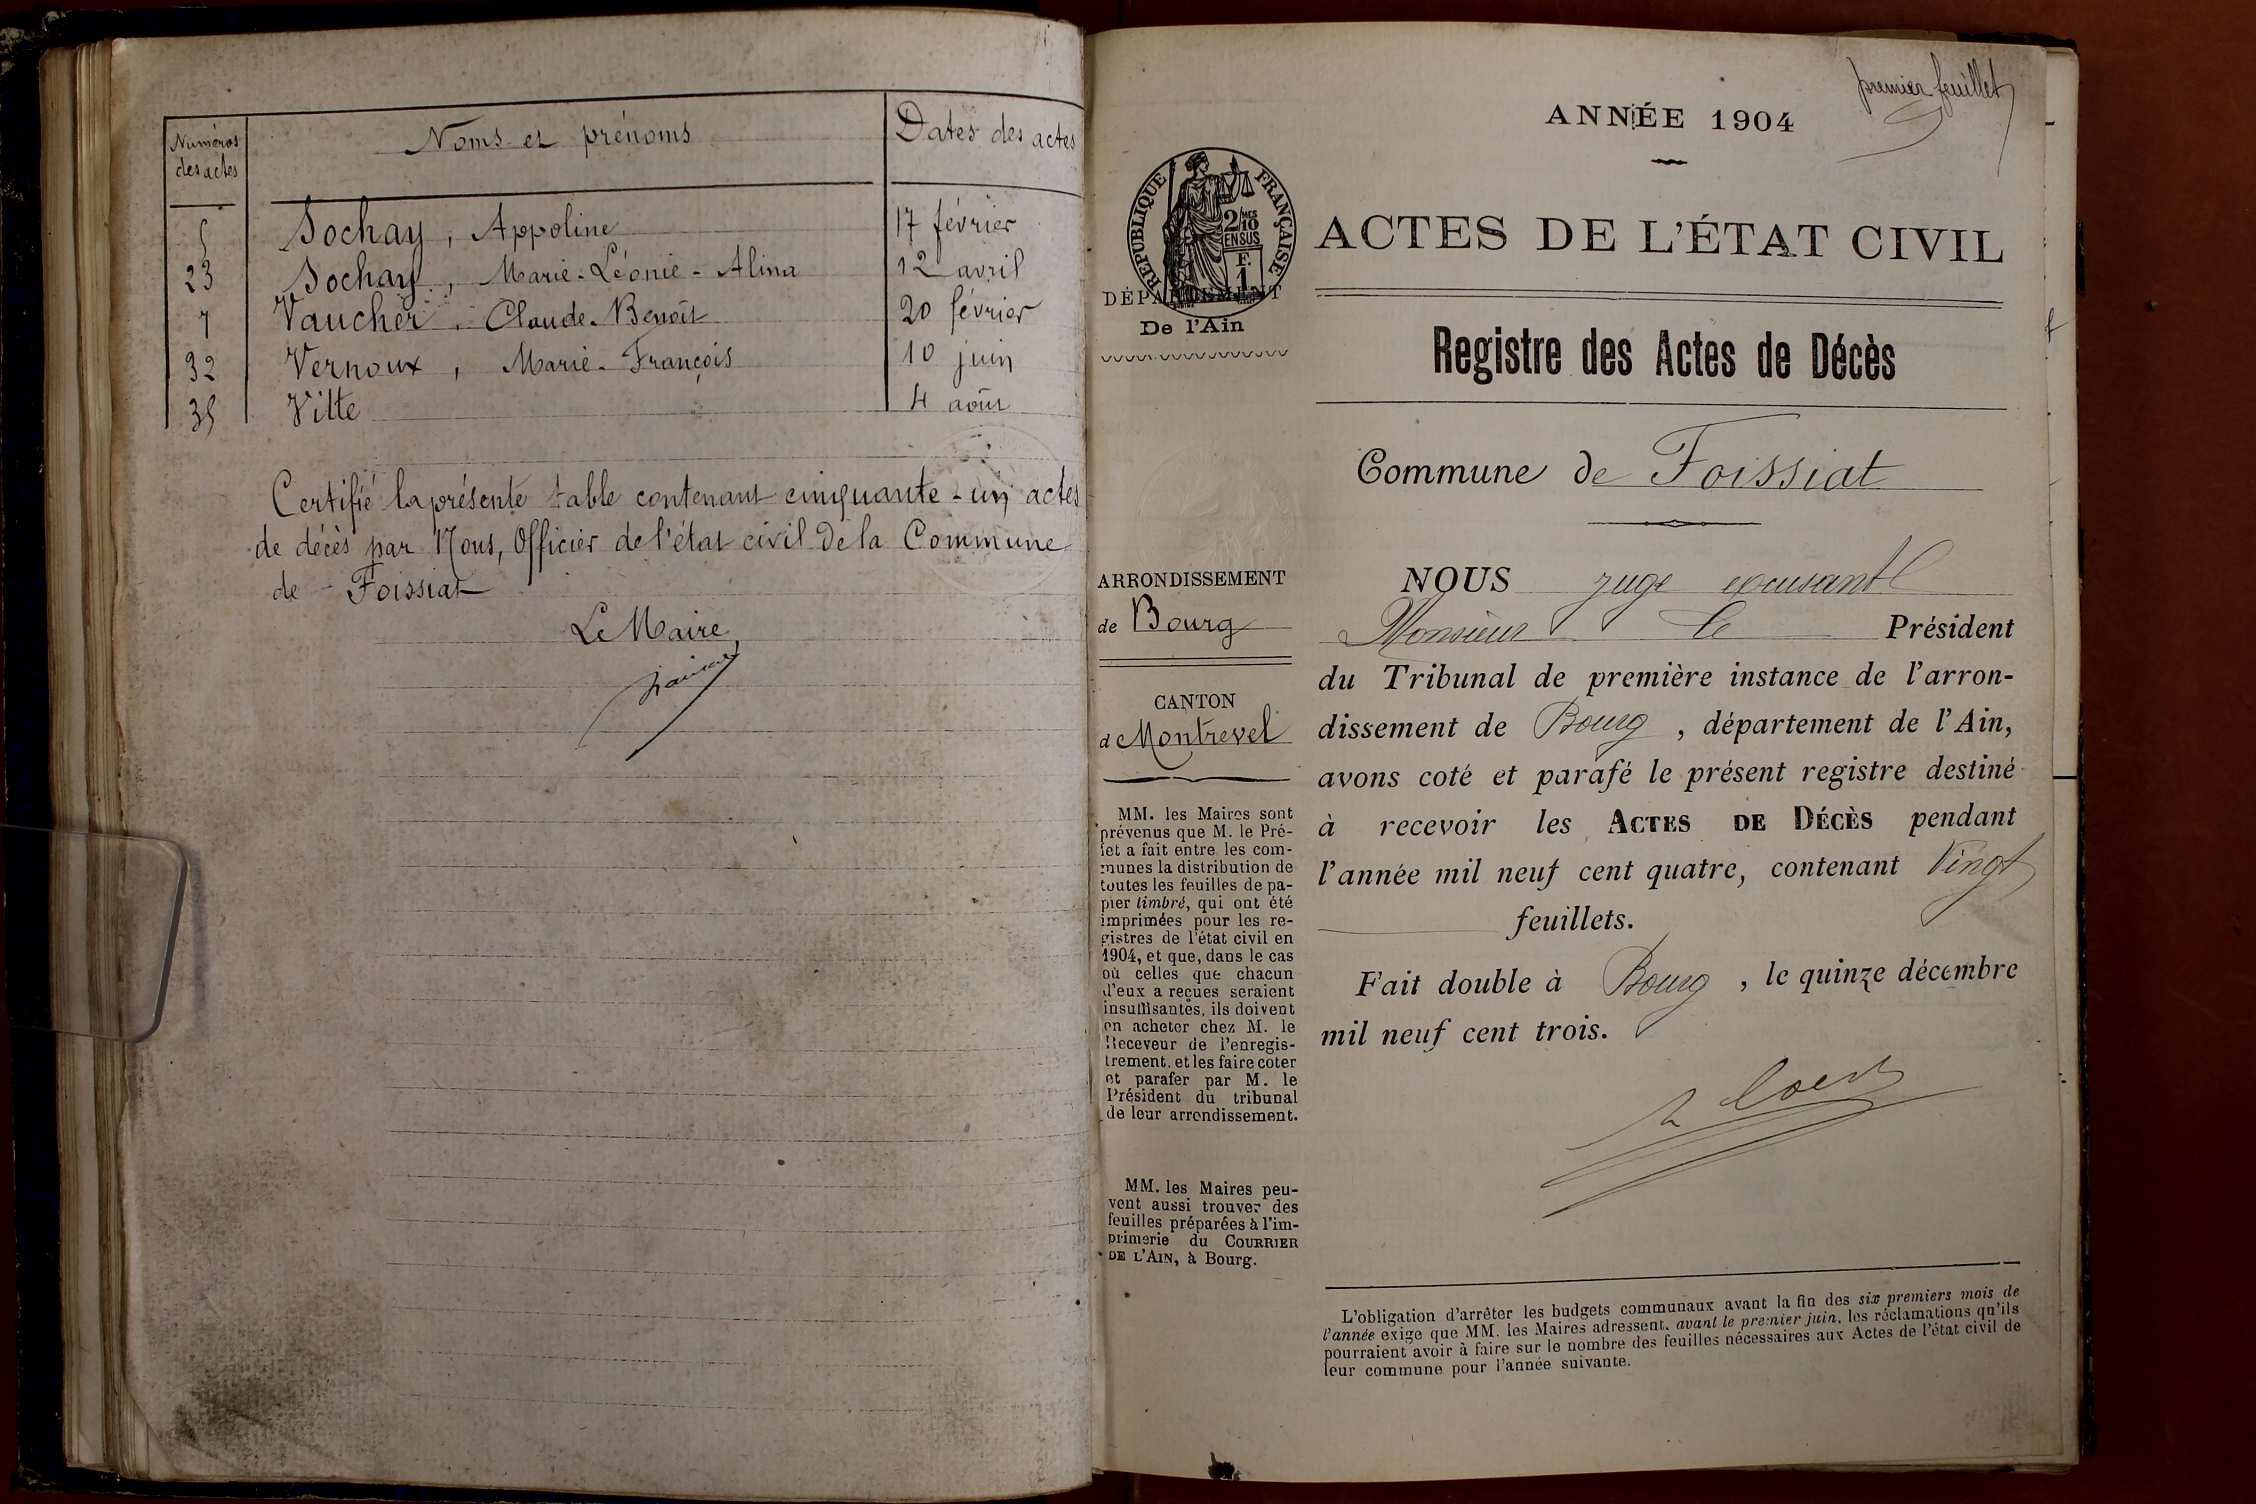 Numéros des actes
Noms et prénoms
Dates des actes
5 Sochay, Appoline 17 février
23 Sochay, Marie-Léonie-Alina 12 avril
7 Vaucher, Claude-Benoît 20 février
32 Vernoux, Marie-François 10 juin
35 Vitte 4 août
Certifié la présente table contenant cinquante-un actes
de décès par Nous, Officier de l'état civil de la Commune
de Foissiat
Le Maire,
premier feuillet
ANNÉE 1904
RÉPUBLIQUE FRANÇAISE
2/10 MES
EN SUS
F.
1
ACTES DE L'ÉTAT CIVIL
DÉPARTEMENT
De l'Ain
Registre des Actes de Décès
Commune de Foissiat
ARRONDISSEMENT
de Bourg
CANTON
de Montrevel
MM. les Maires sont
prévenus que M. le Pré-
fet a fait entre les com-
munes la distribution de
toutes les feuilles de pa-
pier timbré, qui ont été
imprimées pour les re-
gistres de l'état civil en
1904, et que, dans le cas
où celles que chacun
d'eux a reçues seraient
insuffisantes, ils doivent
en acheter chez M. le
Receveur de l'enregis-
trement, et les faire coter
et parafer par M. le
Président du tribunal
de leur arrondissement.
MM. les Maires peu-
vent aussi trouver des
feuilles préparées à l'im-
primerie du COURRIER
DE L'AIN, à Bourg.
NOUS juge
Monsieur le Président
du Tribunal de première instance de l'arron-
dissement de Bourg, département de l'Ain,
avons coté et parafé le présent registre destiné
à recevoir les ACTES DE DÉCÈS pendant
l'année mil neuf cent quatre, contenant Vingt
feuillets.
Fait double à Bourg, le quinze décembre
mil neuf cent trois.
L'obligation d'arrêter les budgets communaux avant la fin des six premiers mois de
l'année exige que MM. les Maires adressent, avant le premier juin, les réclamations qu'ils
pourraient avoir à faire sur le nombre des feuilles nécessaires aux Actes de l'état civil de
leur commune pour l'année suivante.